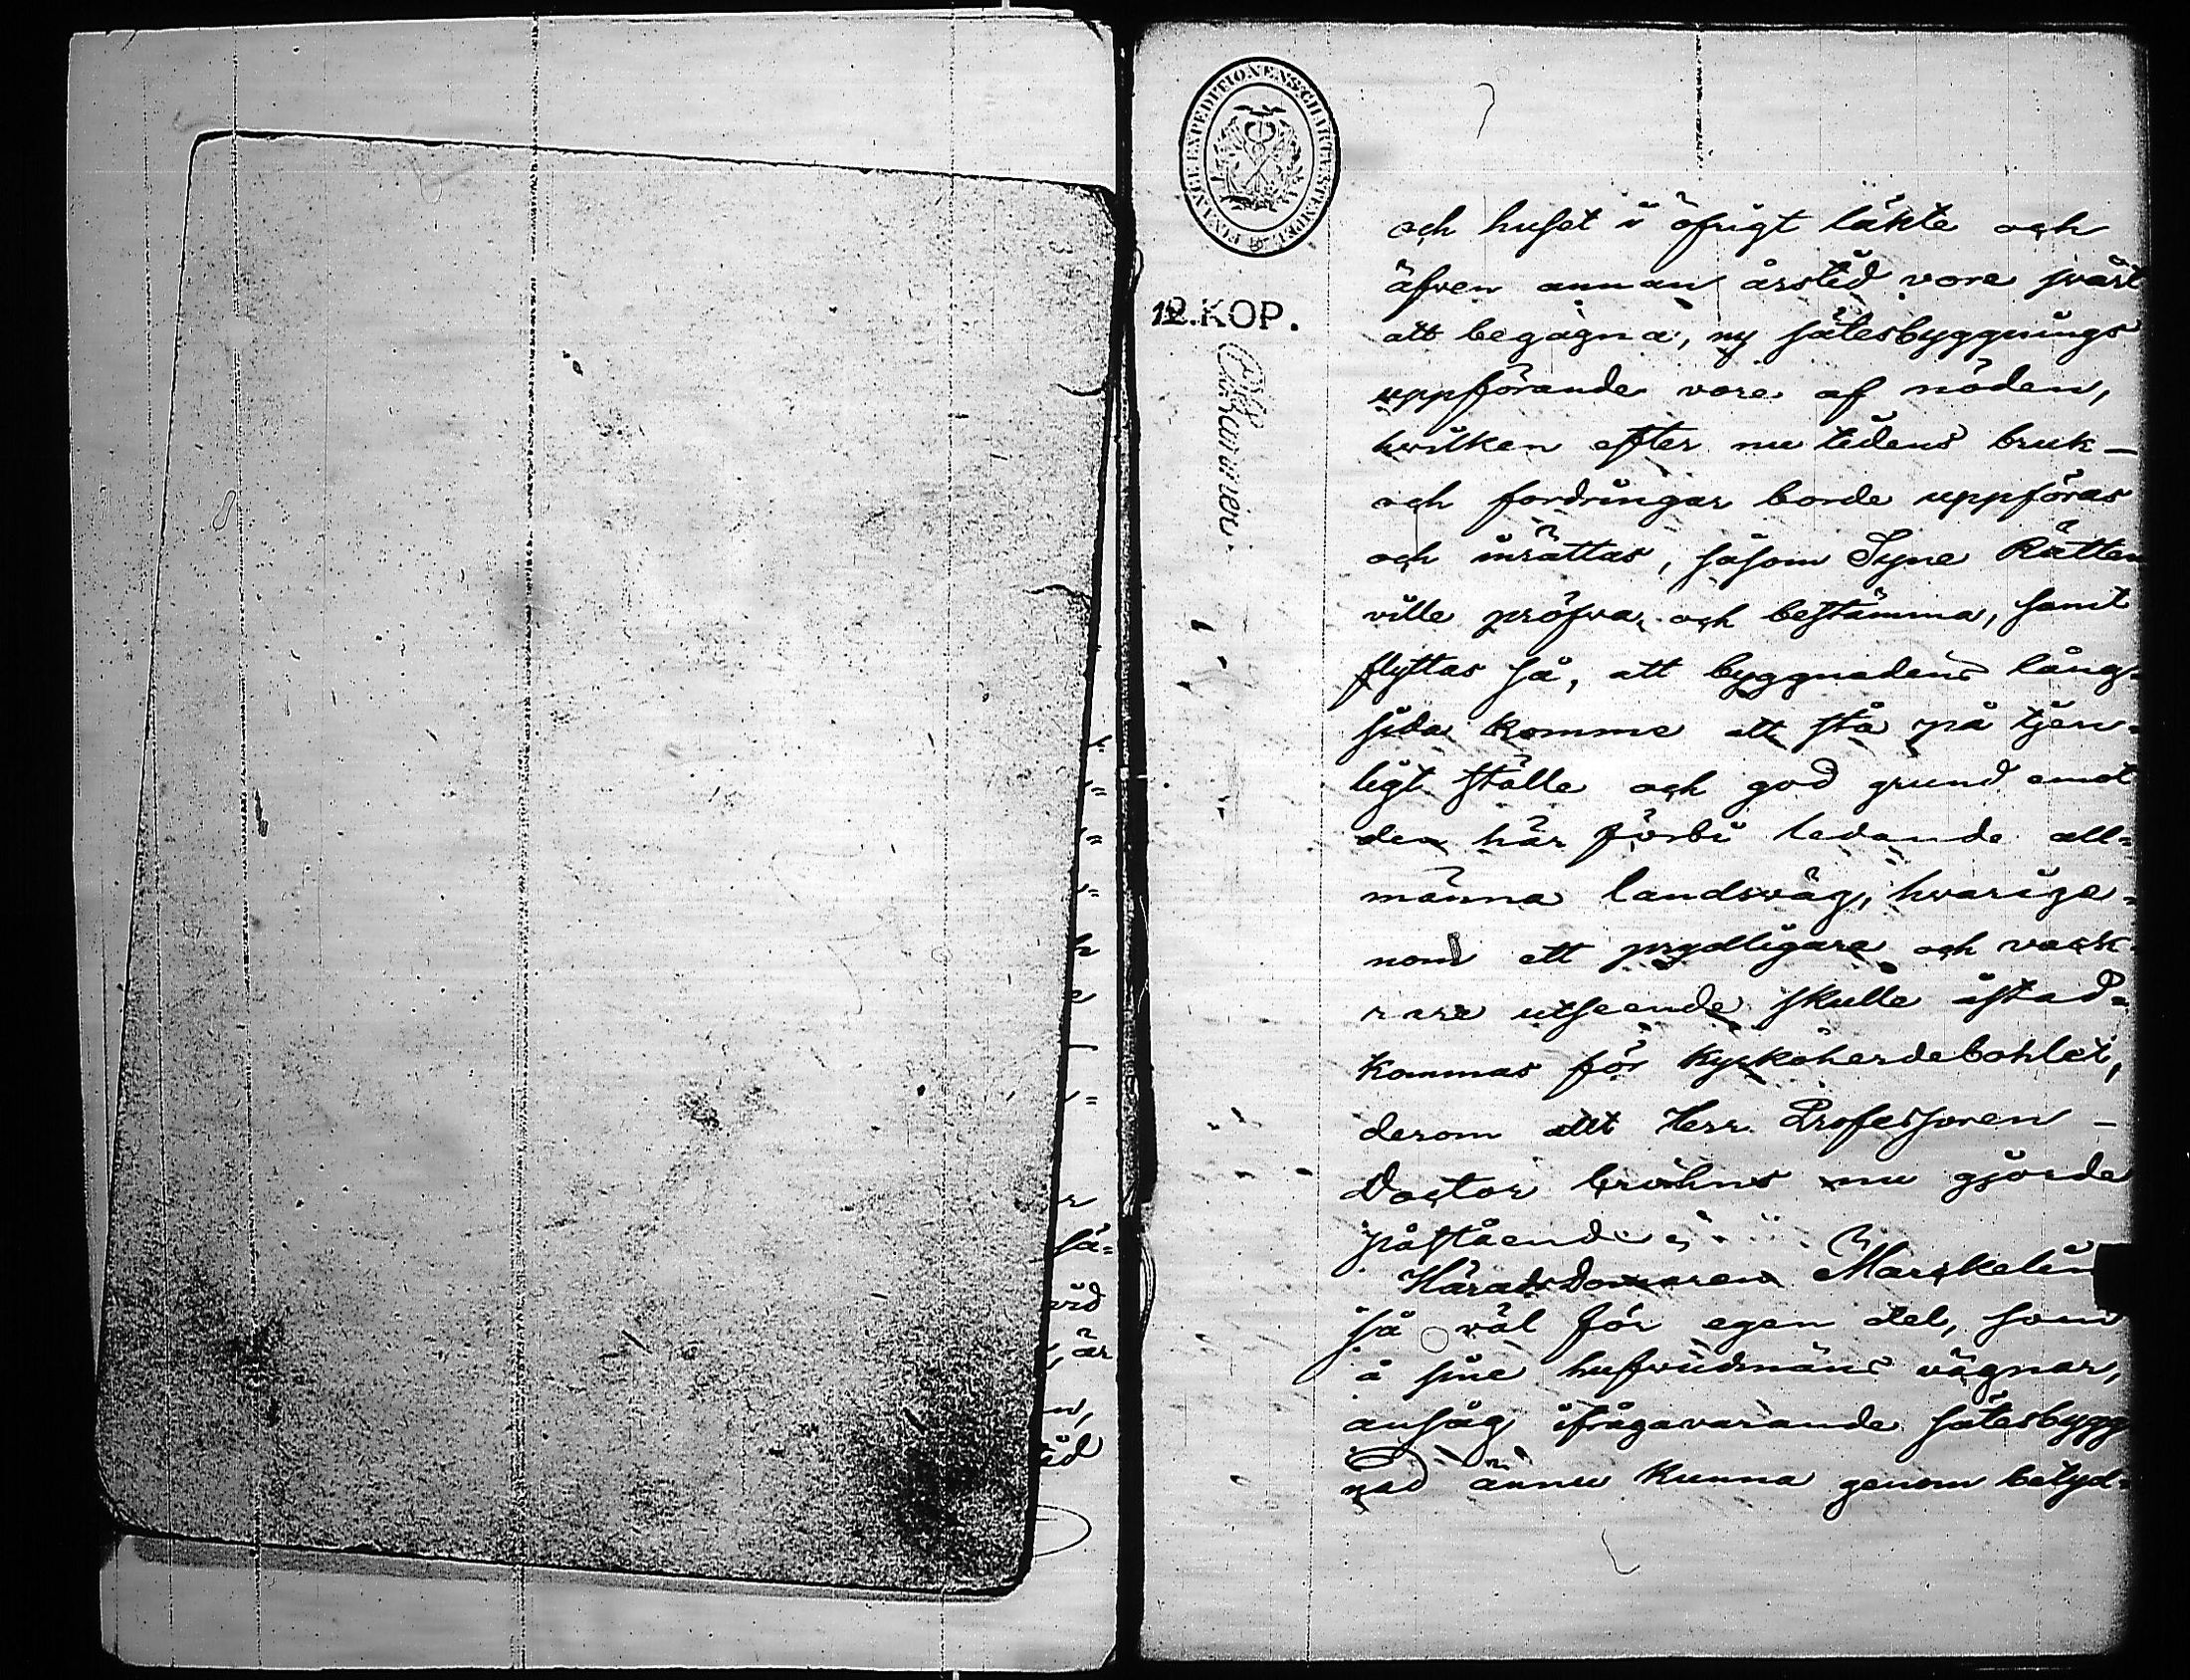 FINANCE EXPEDITIONENS CHARTÆ STEMPEL
12.KOP.
och huset i öfrigt läkte och
äfven annan årstid vore svårt
att begagna, ny sätesbyggnings
uppförande vore af nöden,
hvilken efter nu tidens bruk –
och fordringar borde uppföras
och inrättas, såsom Syne Rätten
ville pröfva och bestämma, samt
flyttas så, att byggnadens lång=
sida komme att stå på tjen=
ligt ställe och god grund emot
den här förbi ledande all=
männa landsväg, hvarige=
nom ett prydligare och vack=
rare utseende skulle åstad=
kommas för Kyrkoherdebohlet,
derom allt Herr Professoren –
Doctor Bruhns nu gjorde
påstående;
HäradsDomaren Marskelin
så väl för egen del, som
å sine hufvudmäns vägnar,
ansåg ifrågavarande sätesbygg
nad ännu kunna genom betyd=
så=
vid
är
n,
tid